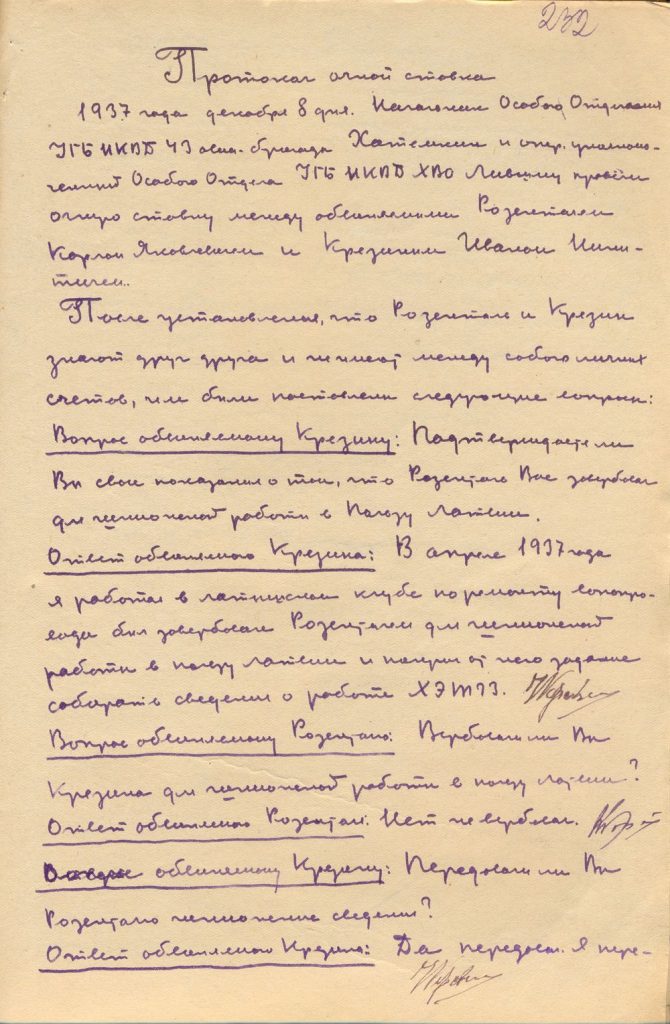 232
Протокол очной ставки
1937 года декабря 8 дня. Начальник Особого Отделения
УГБ НКВД 43 авиа-бригады и опер. уполномо-
ченный Особого Отдела УГБ НКВД ХВО провели
очную ставку между обвиняемыми Розенталем
Карлом Яковлевичем и Крезиным Иваном Ники-
тичем.
После установления, что Розенталь и Крезин
знают друг друга и не имеют между собою личных
счетов, им были поставлены следующие вопросы:
Вопрос обвиняемому Крезину: Подтверждаете ли
Вы свои показания о том, что Розенталь Вас завербовал
для шпионской работы в пользу Латвии.
Ответ обвиняемого Крезина: В апреле 1937 года
я работая в латышском клубе по ремонту водопро-
вода был завербован Розенталем для шпионской
работы в пользу Латвии и получил от него задание
собирать сведения о работе ХЭТЗ.
Вопрос обвиняемому Розенталю: Вербовали ли Вы
Крезина для шпионской работы в пользу Латвии?
Ответ обвиняемого Розенталя: Нет не вербовал.
Вопрос обвиняемому Крезину: Передавали ли Вы
Розенталю шпионские сведения?
Ответ обвиняемого Крезина: Да передавал. Я пере-